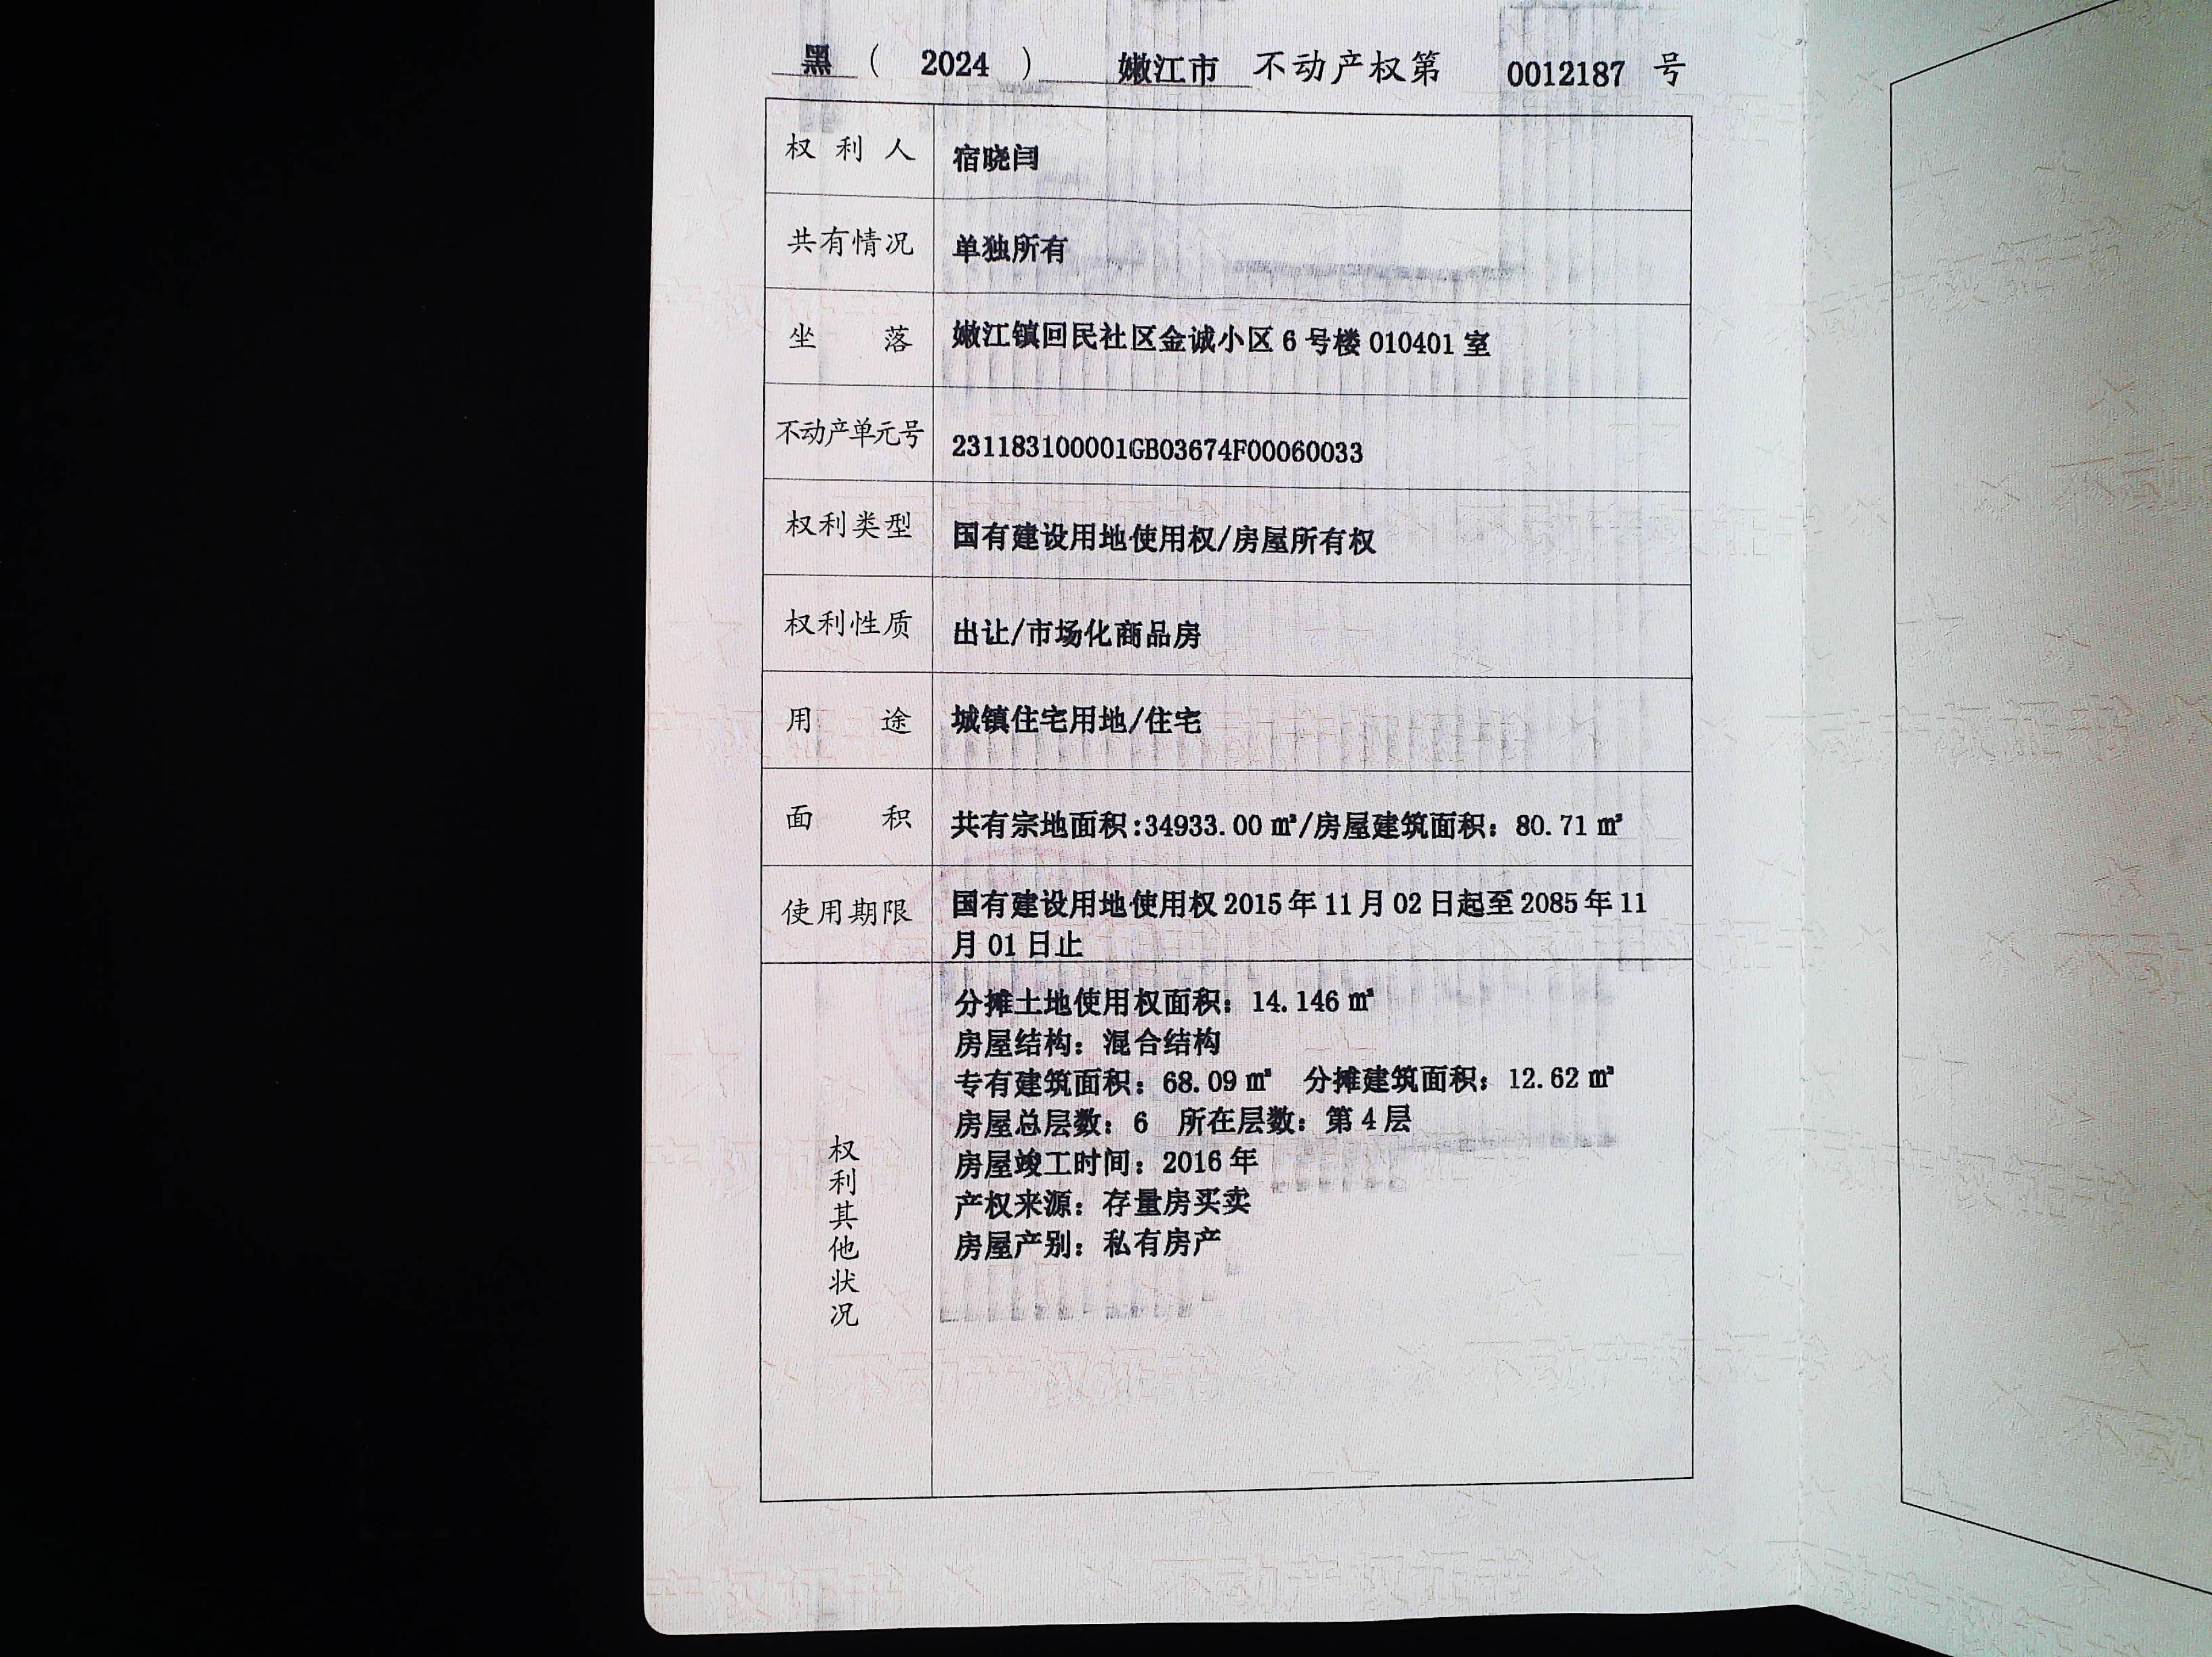 黑（ 2024 ） 嫩江市 不动产权第 0012187 号
权利人 宿晓闫
共有情况 单独所有
坐落 嫩江镇回民社区金诚小区 6 号楼 010401 室
不动产单元号 231183100001GB03674F00060033
权利类型 国有建设用地使用权/房屋所有权
权利性质 出让/市场化商品房
用途 城镇住宅用地/住宅
面积 共有宗地面积:34933.00 ㎡/房屋建筑面积：80.71 ㎡
使用期限 国有建设用地使用权 2015 年 11 月 02 日起至 2085 年 11
月 01 日止
权利其他状况
分摊土地使用权面积：14.146 ㎡
房屋结构：混合结构
专有建筑面积：68.09 ㎡ 分摊建筑面积：12.62 ㎡
房屋总层数：6 所在层数：第 4 层
房屋竣工时间：2016 年
产权来源：存量房买卖
房屋产别：私有房产